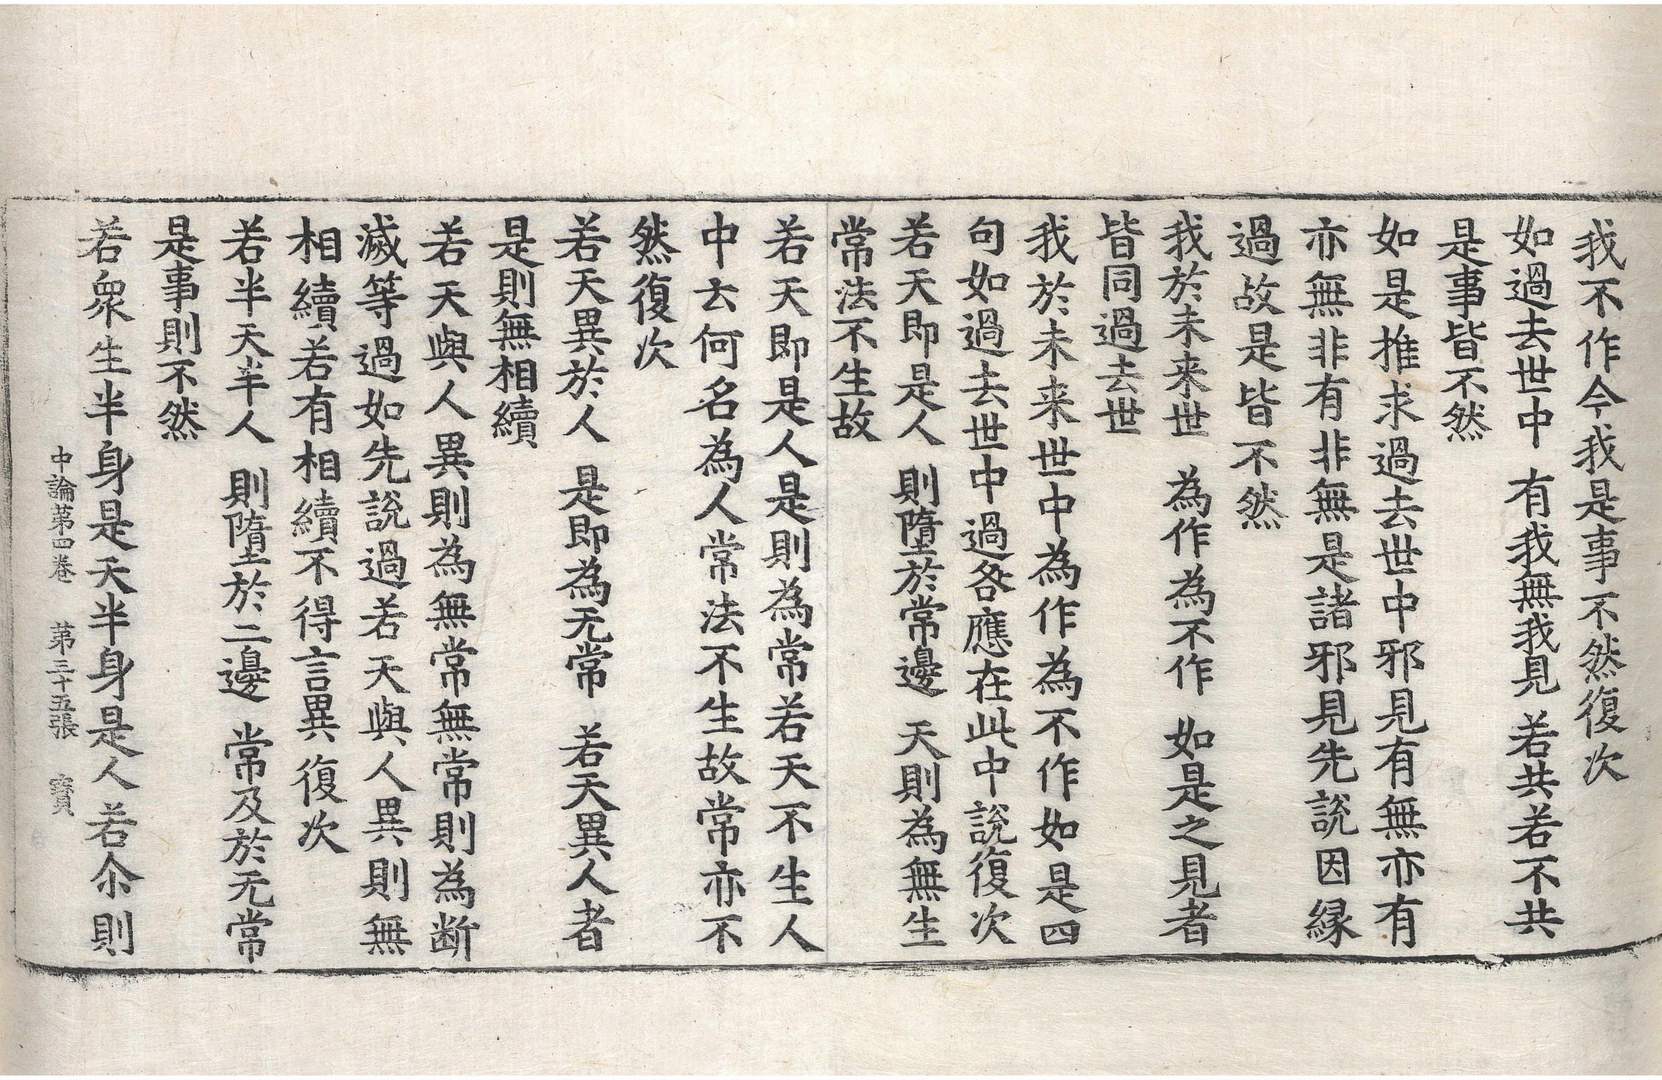 我不作今我是事不然復次
如過去世中 有我無我見 若共若不共
是事皆不然
如是推求過去世中邪見有無亦有
亦無非有非無是諸邪見先說因緣
過故是皆不然
我於未来世 為作為不作 如是之見者
皆同過去世
我於未来世中為作為不作如是四
句如過去世中過咎應在此中說復次
若天即是人 則墮於常邊 天則為無生
常法不生故
若天即是人是則為常若天不生人
中云何名為人常法不生故常亦不
然復次
若天異於人 是即為无常 若天異人者
是則無相續
若天與人異則為無常無常則為断
滅等過如先說過若天與人異則無
相續若有相續不得言異復次
若半天半人 則墮於二邊 常及於无常
是事則不然
若衆生半身是天半身是人若尒則
中論第四卷 第三十五張 寶